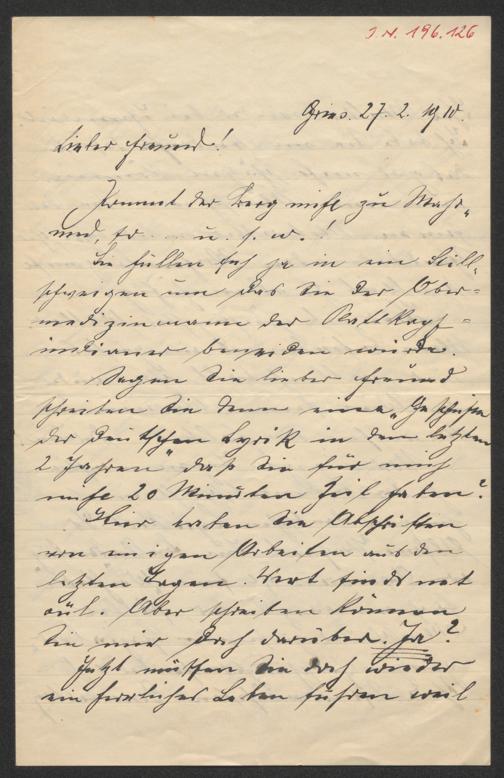 J. N. 196.126
Gries. 27. 2. 1910.
Lieber Freund!
Kommt der Berg nicht zu Moha-
med, so . u. s. w.!
Sie hüllen sich ja in ein Still-
schweigen um das Sie der Ober-
medizinmann der Plattkopf-
indianer beneiden würde.
Sagen Sie lieber Freund
schreiben Sie denn eine „Geschichte
der deutschen Lyrik in den letzten
2 Jahren" daß Sie für mich
nicht 20 Minuten Zeit haben?
Hier haben Sie Abschriften
von einigen Arbeiten aus den
letzten Tagen. Wert sinds net
viel. Aber schreiben können
Sie mir doch darüber. Ja?
Jetzt müssen Sie doch wieder
ein herrliches Leben führen weil